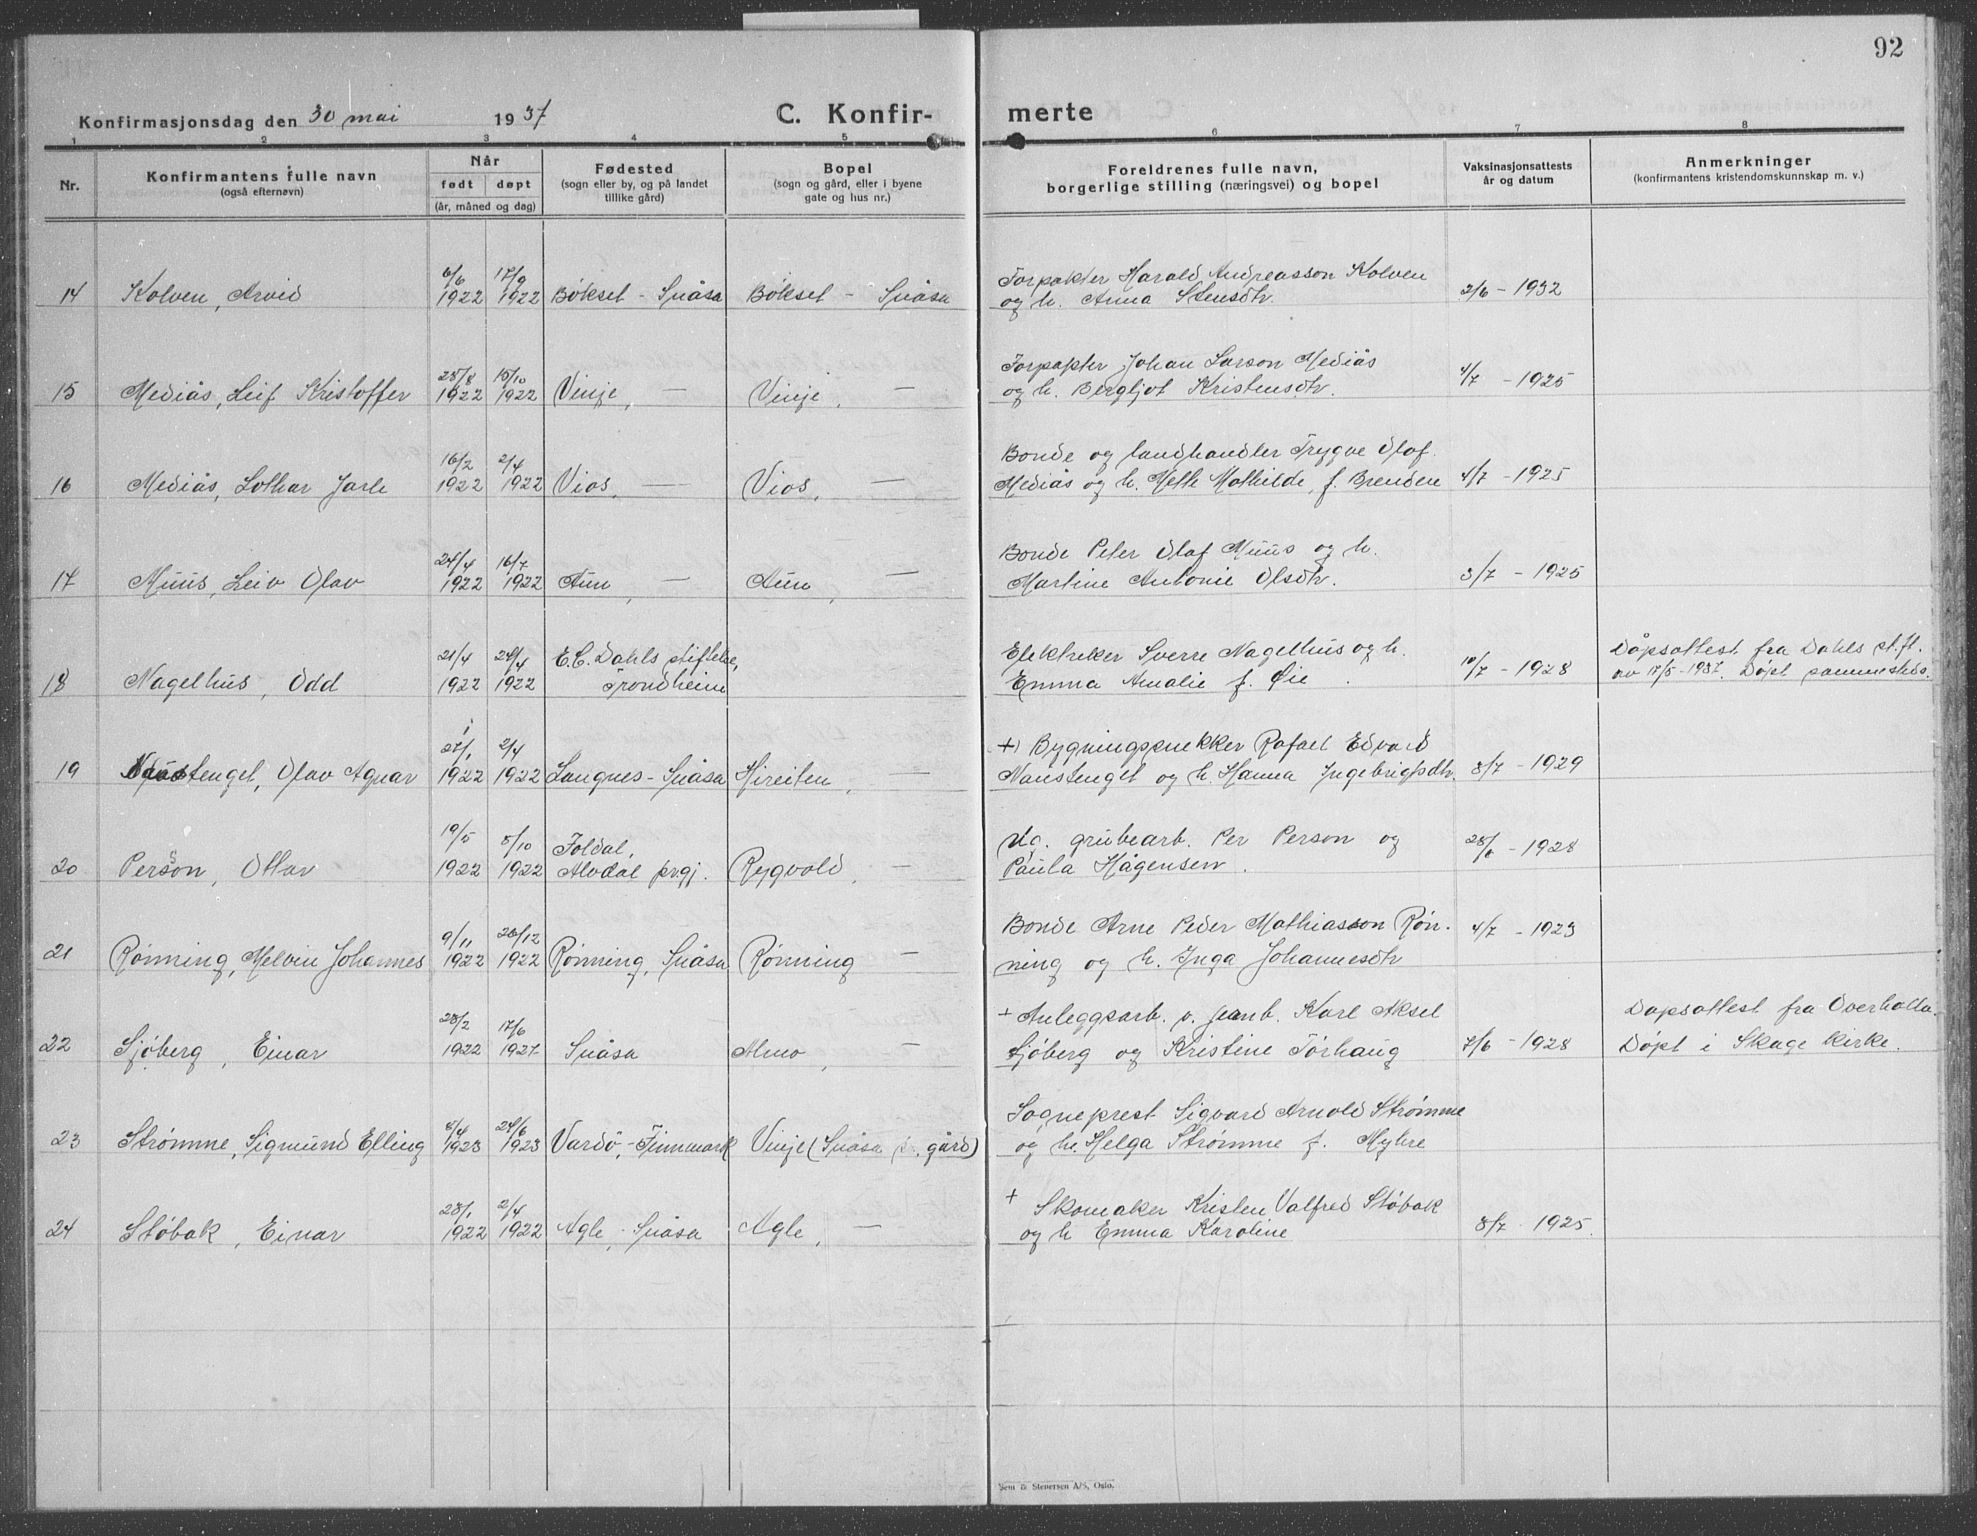 92
Konfirmasjonsdag den 30 mai 1937 C. Konfir- merte
1 2 3 4 5 6 7 8
Nr. Konfirmantens fulle navn (også efternavn) Når født døpt (år, måned og dag) Fødested (sogn eller by, og på landet tillike gård) Bopel (sogn og gård, eller i byene gate og hus nr.) Foreldrenes fulle navn, borgerlige stilling (næringsvei) og bopel Vaksinasjonsattests år og datum Anmerkninger (konfirmantens kristendomskunnskap m. v.)
6/6 17/9 Forpakter Harald Andreasson Kolven
14 Kolven, Arvid 1922 1922 Bøkset - Snåsa Bøkset - Snåsa og h. Anna Stensdtr. 2/6 - 1932
25/8 15/10 Forpakter Johan Larson Mediås
15 Mediås, Leif Kristoffer 1922 1922 Vinje, — Vinje, — og h. Bergljot Kristensdtr. 4/7 - 1925
16/2 2/4 Bonde og landhandler Trygve Olaf
16 Mediås, Lothar Jarle 1922 1922 Vios, — Vios, — Mediås og h. Mette Mathilde, f. Brenden 4/7 - 1925
24/4 16/7 Bonde Peter Olaf Muus og h.
17 Muus, Leiv Olav 1922 1922 Aun, — Aun, — Martine Antonie Olsdtr. 3/7 - 1925
21/4 24/4 E.C. Dahls stiftelse, Elektriker Sverre Nagelhus og h. Dåpsattest fra Dahls stift.
18 Nagelhus, Odd 1922 1922 Trondheim Emma Amalie f. Øie. 10/7 - 1928 av 11/5-1937. Døpt sammesteds.
27/1 2/4 +) Bygningssnekker Rafael Edvard
19 Naustenget, Olav Agnar 1922 1922 Langnes - Snåsa Hireiten, — Naustenget og h. Hanna Ingebrigtsdtr. 8/7 - 1929
19/5 8/10 Foldal, Ug. grubearb. Per Person og
20 Person, Ottar 1922 1922 Alvdal prgj. Rygvold, — Paula Hågensen. - 1928
9/11 26/12 Bonde Arne Peder Mathiasson Røn-
21 Rønning, Melvin Johannes 1922 1922 Rønning, Snåsa Rønning — ning og h. Inga Johannesdtr 4/7 - 1923
28/2 17/6 + Anleggsarb. v. jernb. Karl Aksel Dåpsattest fra Overhalla.
22 Sjöberg, Einar 1922 1927 Snåsa Almo, — Sjöberg og Kristine Törhaug 7/6 - 1928 Døpt i Skage kirke.
5/4 24/6 Sogneprest Sigvard Arnold Strømme
23 Strømme, Sigmund Elling 1923 1923 Vardö, - Finnmark Vinje (Snåsa pr. gård) og h. Helga Strømme f. Myhre
28/1 2/4 + Skomaker Kristen Valfred Støbak
24 Støbak, Einar 1922 1922 Agle, - Snåsa Agle, — og h Emma Karoline 8/7 1925.
Sem & Stenersen A/S, Oslo.